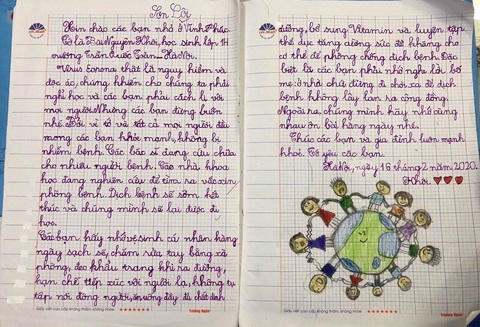 Sơn Lôi
Xin chào các bạn nhỏ ở Vĩnh Phúc.
Tớ là Bùi Nguyên Khôi, học sinh lớp 1H
trường Trần Quốc Toản - Hà Nội.
Virus Corona thật là nguy hiểm và
độc ác, chúng khiến cho chúng ta phải
nghỉ học và các bạn phải cách li với
mọi người. Nhưng các bạn đừng buồn
nhé. Bởi vì tớ và tất cả mọi người đều
mong các bạn khỏe mạnh, không bị
nhiễm bệnh. Các bác sĩ đang cứu chữa
cho nhiều người bệnh. Các nhà khoa
học đang nghiên cứu để tìm ra vắc xin
phòng bệnh. Dịch bệnh sẽ sớm kết
thúc và chúng mình sẽ lại được đi
học.
Các bạn hãy nhớ vệ sinh cá nhân hàng
ngày sạch sẽ, chăm rửa tay bằng xà
phòng, đeo khẩu trang khi ra đường,
hạn chế tiếp xúc với người lạ, không tụ
tập nơi đông người, ăn uống đầy đủ chất dinh
dưỡng, bổ sung Vitamin và luyện tập
thể dục tăng cường sức đề kháng cho
cơ thể để phòng chống dịch bệnh. Đặc
biệt là các bạn phải nhớ nghe lời bố
mẹ: ở nhà chứ đừng đi chơi xa để dịch
bệnh không lây lan ra cộng đồng.
Ngoài ra, chúng mình hãy nhớ cùng
nhau ôn bài hàng ngày nhé.
Chúc các bạn và gia đình luôn mạnh
khỏe. Tớ yêu các bạn.
Hà Nội, ngày 16 tháng 2 năm 2020.
Khôi
Giấy viết cao cấp không thấm, không nhòe
Giấy viết cao cấp không thấm, không nhòe